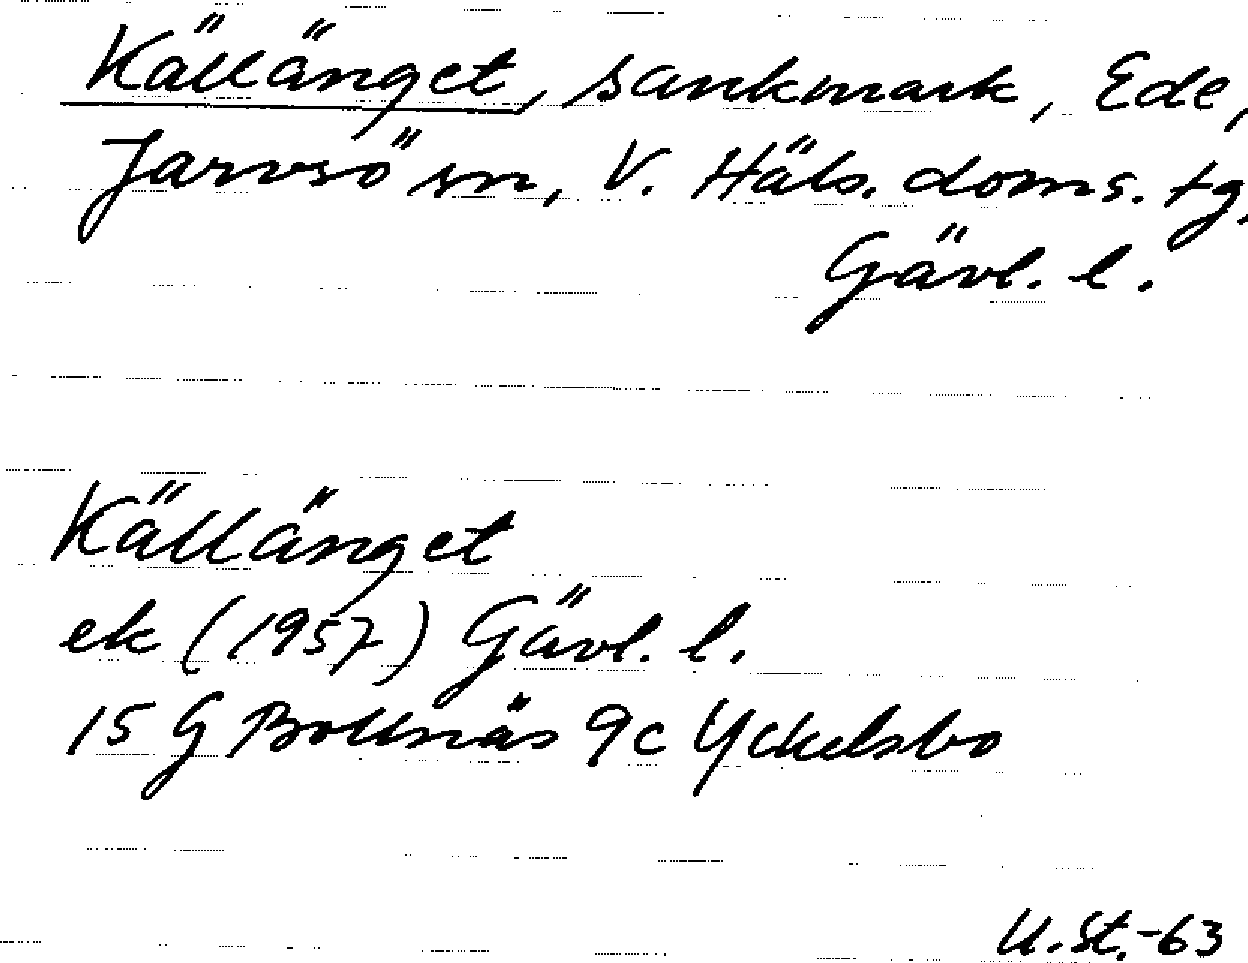 Källänget, sankmark, Ede,
Jarvsö sn, V. Häls. doms. tg,
Gävl. l.
Källänget
ek (1957) Gävl. l.
15 G Bollnäs 9c Yckelsbo
U.St.-63